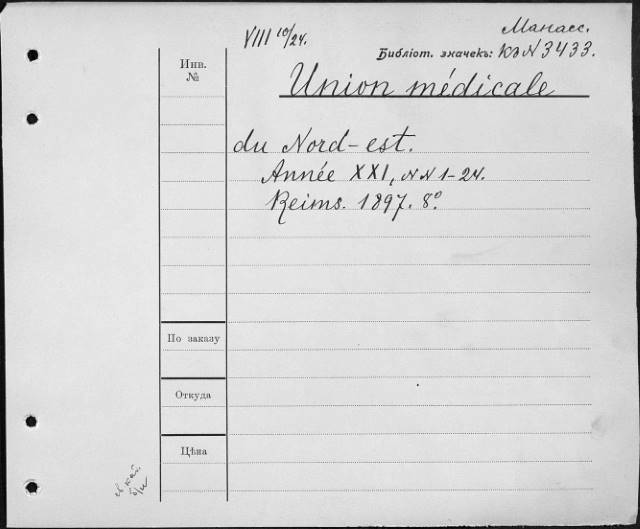 Манасс.
VIII 10/24.
Библіот. значекъ: КэN3433.
Инв.
№
Union médicale
du Nord-est.
Année XXI, NN 1-24.
Reims. 1897. 8º
По заказу
Откуда
Цѣна